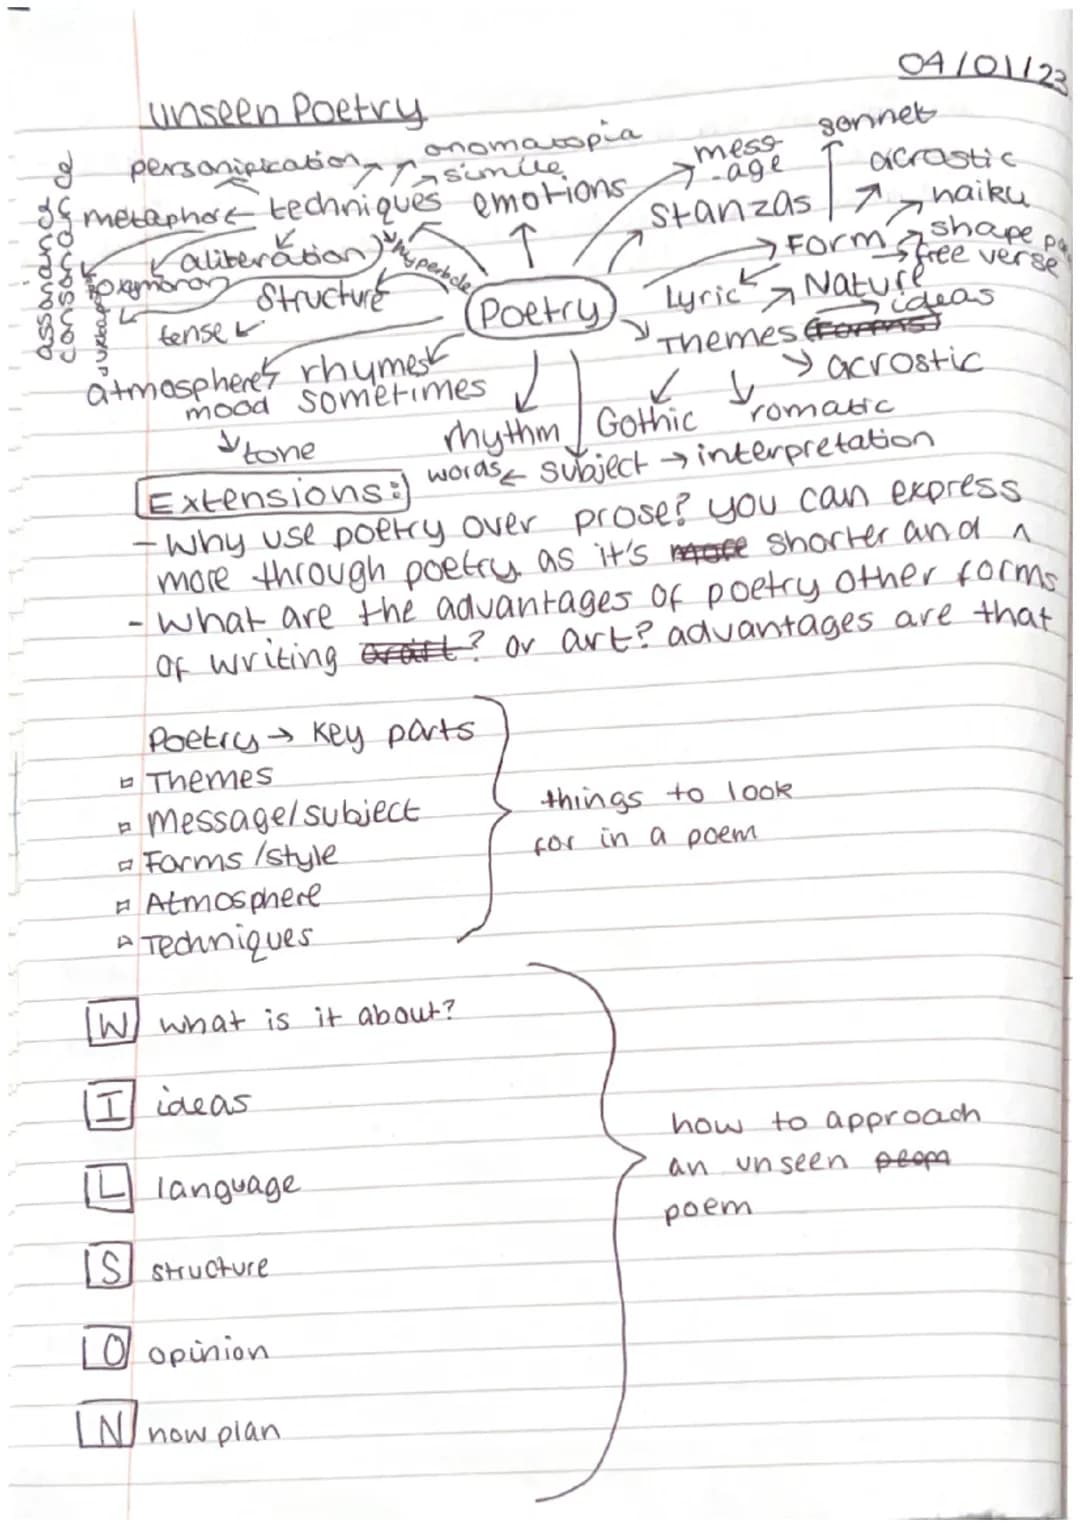 04/01/23
unseen Poetry
sonnet
personification
onomatopia
mess
-age
acrastic
simile
metaphore
techniques
emotions
stanzas
haiku
aliteration
hyperbole
Form
shape po
free verse
oxymoron
Structure
Poetry
Lyric
Nature
ideas
tense
Themes
acrostic
atmosphere
rhymes
sometimes
mood
Gothic
romatic
tone
rhythm
words
subject → interpretation
Extensions:
- Why use poetry over prose? you can express
more through poetry as it's more shorter and ^
- What are the advantages of poetry other forms
of writing ? or art? advantages are that
Poetry → Key parts
Themes
Message/subject
Forms /style
Atmosphere
Techniques
things to look
for in a poem
W what is it about?
I ideas
L language
S structure
O opinion
N now plan
how to approach
an unseen peom
poem